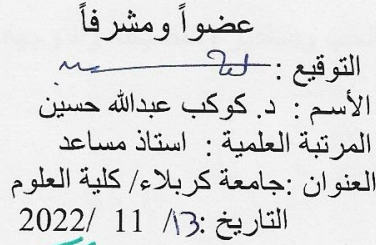 عضواً ومشرفاً
التوقيع :
الأسم : د. كوكب عبدالله حسين
المرتبة العلمية : استاذ مساعد
العنوان :جامعة كربلاء/ كلية العلوم
التاريخ :13/ 11 /2022